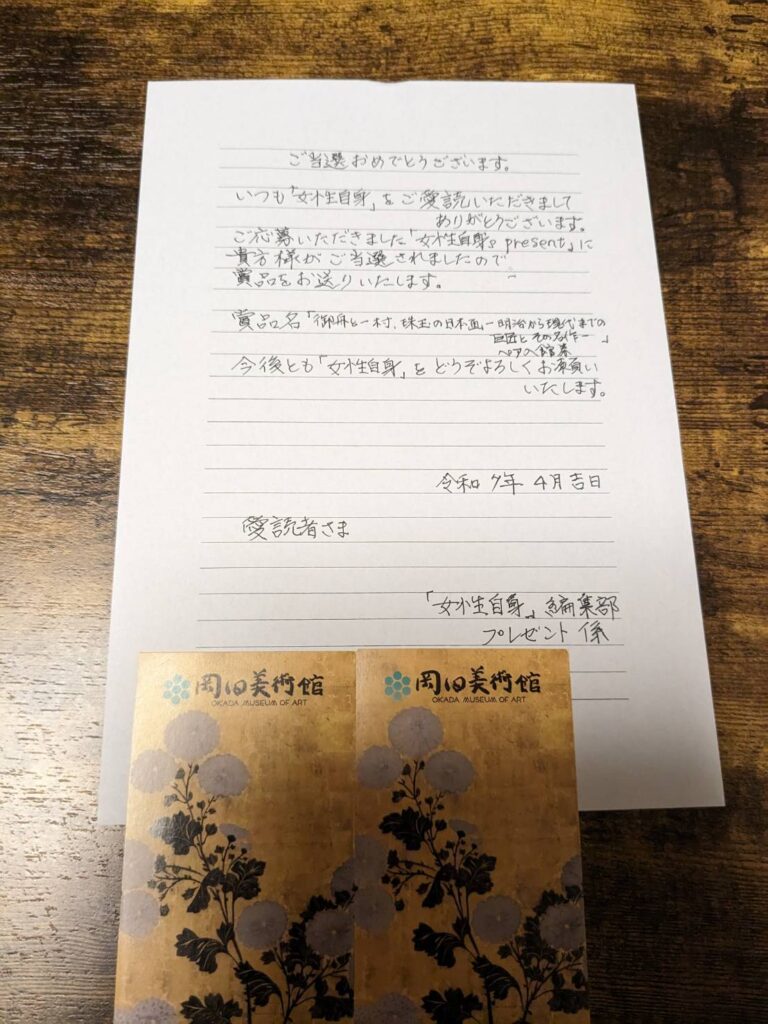 ご当選おめでとうございます。
いつも「女性自身」をご愛読いただきまして
ありがとうございます。
ご応募いただきました「女性自身 present」に
貴方様がご当選されましたので
賞品をお送りいたします。
賞品名「御舟と一村、珠玉の日本画－明治から現代までの
巨匠とその名作－」
ペア入館券
今後とも「女性自身」をどうぞよろしくお願い
いたします。
令和7年 4月吉日
愛読者さま
「女性自身」編集部
プレゼント係
岡田美術館
OKADA MUSEUM OF ART
岡田美術館
OKADA MUSEUM OF ART